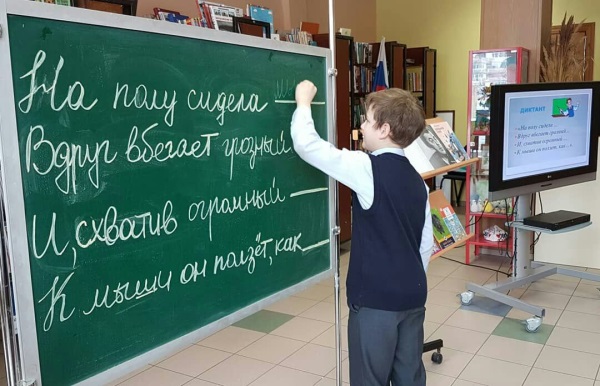 На полу сидела ___
Вдруг вбегает грозный
И, схватив огромный ___
К мыши он ползёт, как ___
ДИКТАНТ
«На полу сидела ...
Вдруг вбегает грозный...
И, схватив огромный ...
К мыши он ползёт, как...»